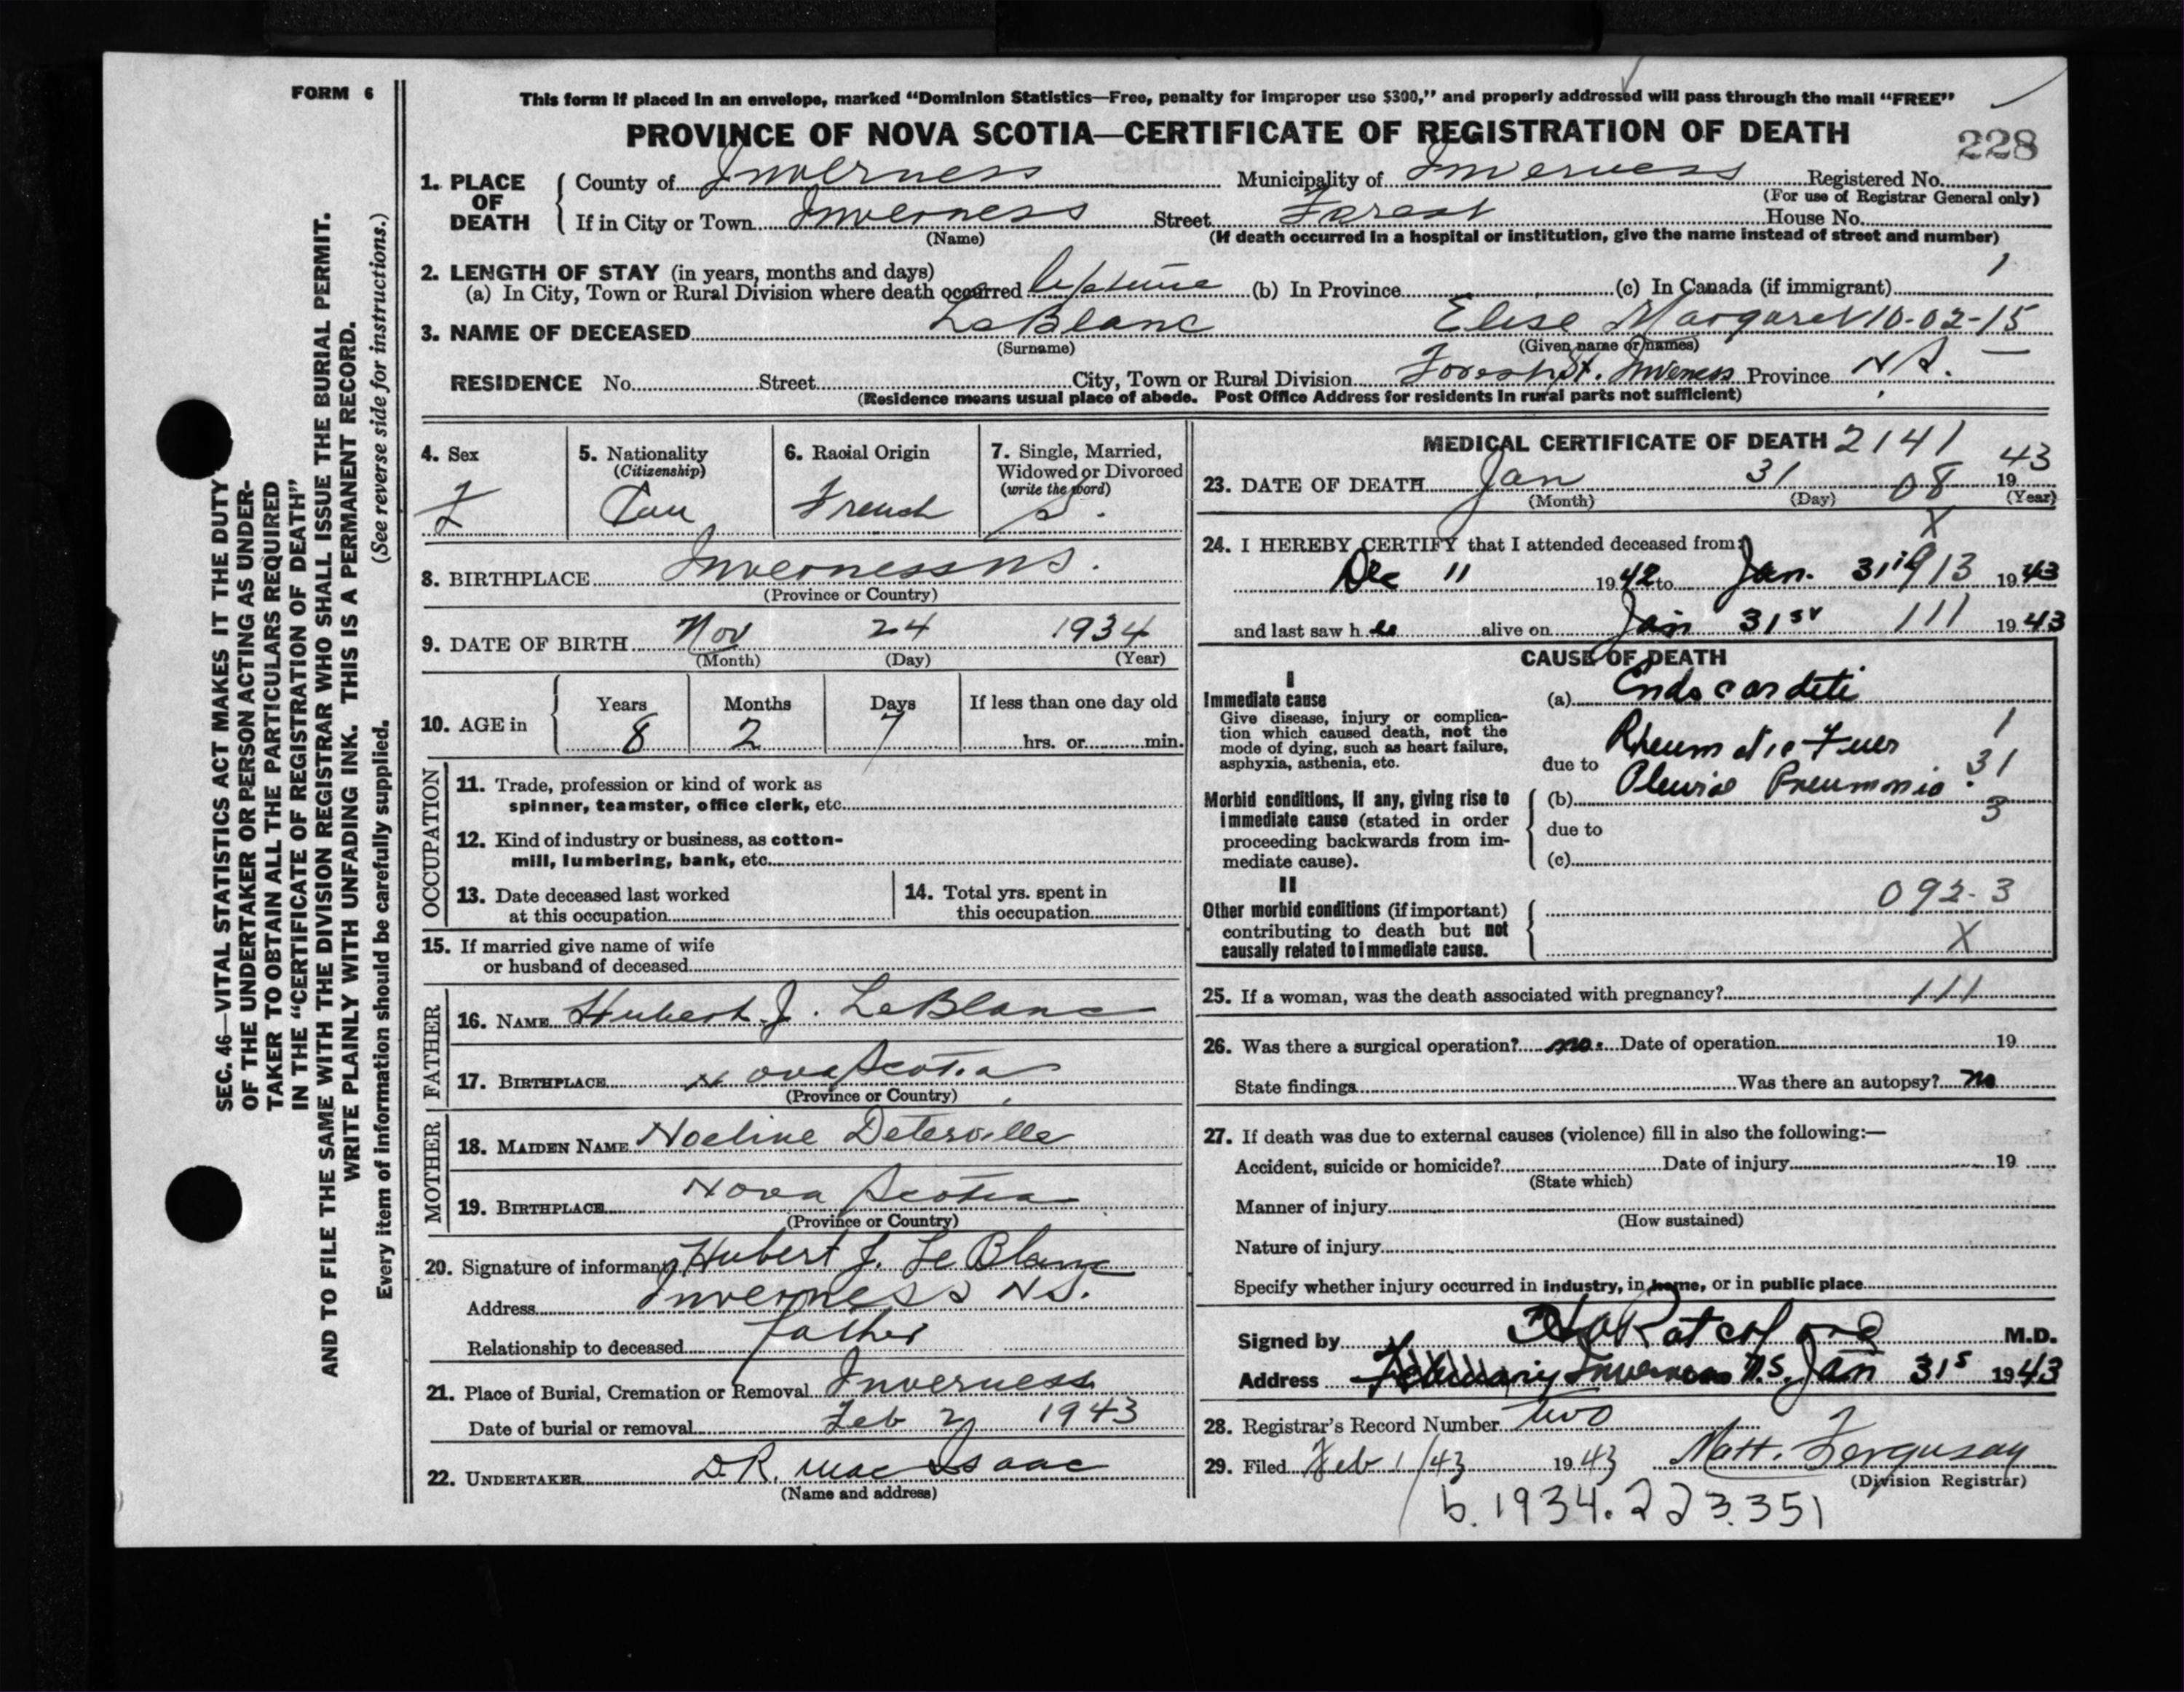 FORM 6
This form if placed in an envelope, marked “Dominion Statistics—Free, penalty for improper use $300,” and properly addressed will pass through the mail “FREE”
PROVINCE OF NOVA SCOTIA—CERTIFICATE OF REGISTRATION OF DEATH
228
1. PLACE OF DEATH
County of Inverness Municipality of Inverness Registered No.
(For use of Registrar General only)
If in City or Town Inverness Street Forest House No.
(Name) (If death occurred in a hospital or institution, give the name instead of street and number)
2. LENGTH OF STAY (in years, months and days) 1
(a) In City, Town or Rural Division where death occurred lifetime (b) In Province (c) In Canada (if immigrant)
3. NAME OF DECEASED LeBlanc Elise Margaret 10-02-15
(Surname) (Given name or names)
RESIDENCE No. Street City, Town or Rural Division Forest St. Inverness Province N.S.
(Residence means usual place of abode. Post Office Address for residents in rural parts not sufficient)
4. Sex
F
5. Nationality
(Citizenship)
Can
6. Racial Origin
French
7. Single, Married,
Widowed or Divorced
(write the word)
S.
8. BIRTHPLACE Inverness NS.
(Province or Country)
9. DATE OF BIRTH Nov 24 1934
(Month) (Day) (Year)
10. AGE in
Years Months Days If less than one day old
8 2 7 hrs. or min.
OCCUPATION
11. Trade, profession or kind of work as
spinner, teamster, office clerk, etc.
12. Kind of industry or business, as cotton-
mill, lumbering, bank, etc.
13. Date deceased last worked
at this occupation
14. Total yrs. spent in
this occupation
15. If married give name of wife
or husband of deceased
FATHER
16. NAME Hubert J. LeBlanc
17. BIRTHPLACE Nova Scotia
(Province or Country)
MOTHER
18. MAIDEN NAME Noeline Deterville
19. BIRTHPLACE Nova Scotia
(Province or Country)
20. Signature of informant Hubert J. Le Blanc
Address Inverness NS.
Relationship to deceased father
21. Place of Burial, Cremation or Removal Inverness
Date of burial or removal Feb 2 1943
22. UNDERTAKER D.R. MacIsaac
(Name and address)
MEDICAL CERTIFICATE OF DEATH 2141
23. DATE OF DEATH Jan 31 08 1943
(Month) (Day) (Year)
X
24. I HEREBY CERTIFY that I attended deceased from:
Dec 11 1942 to Jan. 31 913 1943
and last saw h er alive on Jan 31st 111 1943
CAUSE OF DEATH
I
Immediate cause
Give disease, injury or complica-
tion which caused death, not the
mode of dying, such as heart failure,
asphyxia, asthenia, etc.
(a) Endocardeti
1
due to Rheumatic Fever
31
Morbid conditions, if any, giving rise to
immediate cause (stated in order
proceeding backwards from im-
mediate cause).
(b) Pleural Pneumonia.
3
due to
(c)
II
Other morbid conditions (if important)
contributing to death but not
causally related to immediate cause.
092-3
X
25. If a woman, was the death associated with pregnancy? 111
26. Was there a surgical operation? no. Date of operation 19
State findings Was there an autopsy? no
27. If death was due to external causes (violence) fill in also the following:—
Accident, suicide or homicide? Date of injury 19
(State which)
Manner of injury
(How sustained)
Nature of injury
Specify whether injury occurred in industry, in home, or in public place
Signed by Ratchford M.D.
Address Inverness N.S. Jan 31s 1943
28. Registrar's Record Number two
29. Filed Feb 1/43 1943 Matt. Ferguson
(Division Registrar)
b. 1934. 223.351
SEC. 46—VITAL STATISTICS ACT MAKES IT THE DUTY
OF THE UNDERTAKER OR PERSON ACTING AS UNDER-
TAKER TO OBTAIN ALL THE PARTICULARS REQUIRED
IN THE “CERTIFICATE OF REGISTRATION OF DEATH”
AND TO FILE THE SAME WITH THE DIVISION REGISTRAR WHO SHALL ISSUE THE BURIAL PERMIT.
WRITE PLAINLY WITH UNFADING INK. THIS IS A PERMANENT RECORD.
Every item of information should be carefully supplied. (See reverse side for instructions.)